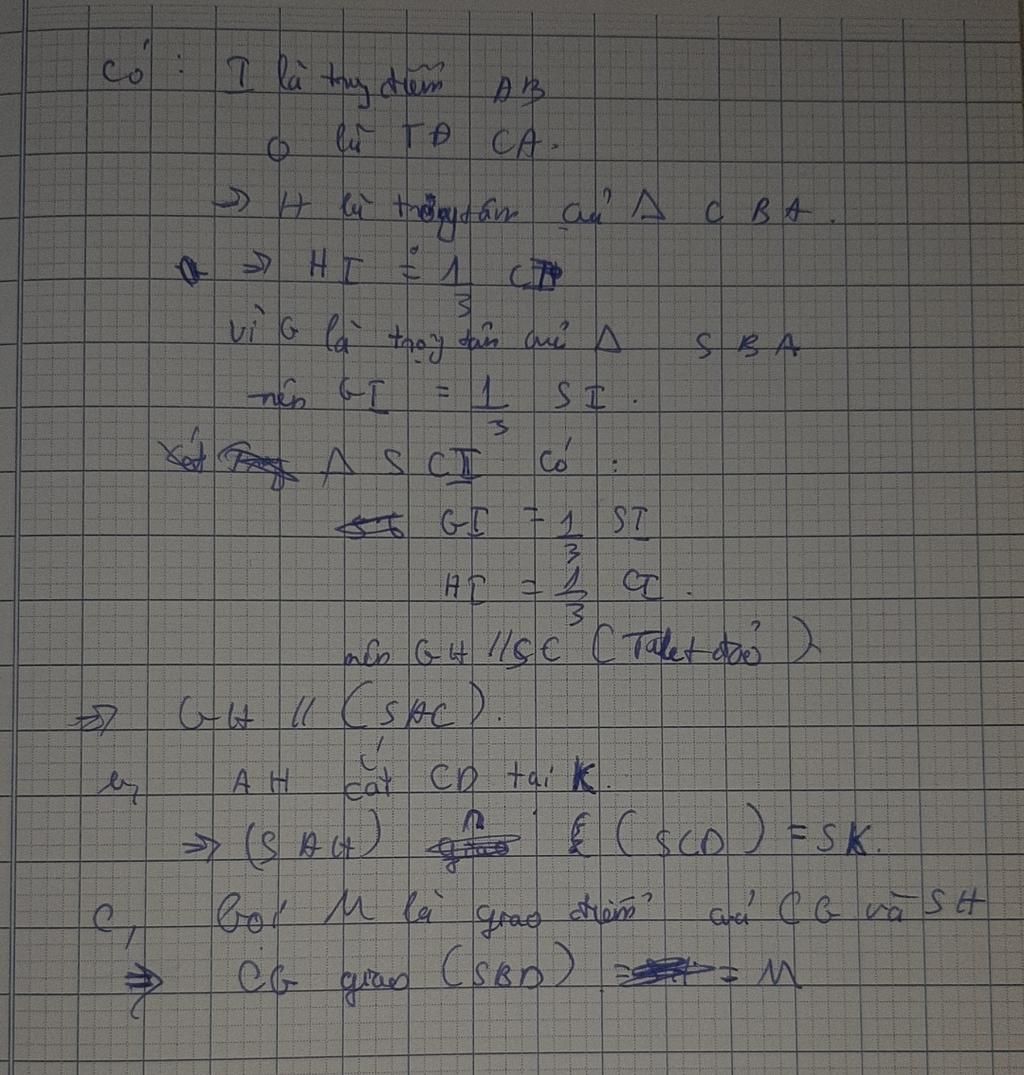 Có : I là trung điểm AB
O là TĐ CA.
=> H là trọng tâm của Δ C B A.
=> HI = 1/3 CI
vì G là trọng tâm của Δ S B A
nên GI = 1/3 SI.
Xét Δ S C I có :
GI = 1/3 SI
HI = 1/3 CI.
nên GH // SC (Talet đảo)
=> GH // (SAC).
b, AH cắt CD tại K.
=> (SAH) ∩ (SCD) = SK.
C, Gọi M là giao điểm của CG và SH
=> CG giao (SBD) = M